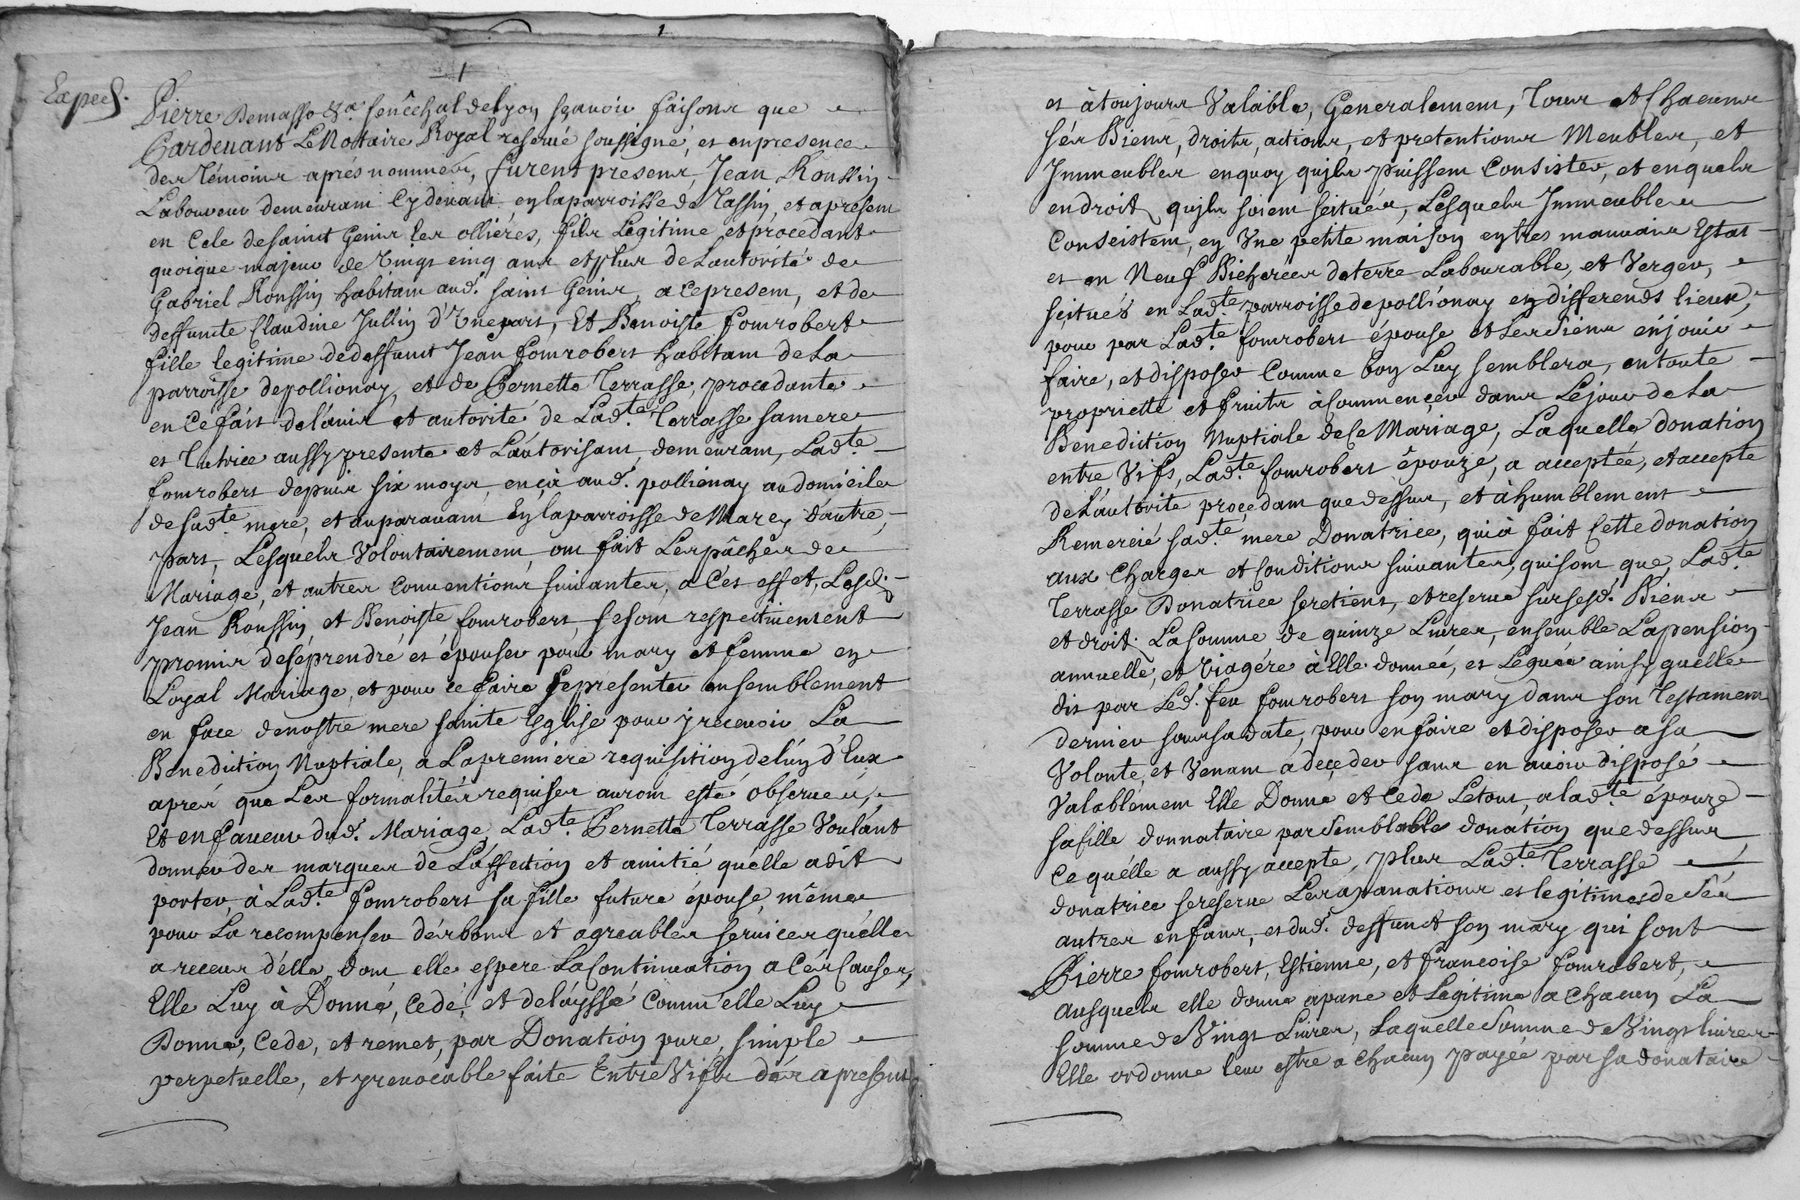 1
1
Exped.
Pierre Demasso &a. senêchal de Lyon sçavoir faisons que
Pardevant Le Nottaire Royal reservé soussigné, et en presence
des Témoins aprés nommés, furent presens, Jean Roussin
Laboureur demeurant Cy devant en la parroisse de Tassin, et apresent
en Cele de saint Genis les ollières, fils Legitime et procedant
quoique majeur de vingt cinq ans et plus de L'autorité de
Gabriel Roussin habitant aud. saint Genis, a ce present, et de
deffuncte Claudine Jullin d'Une part, Et Benoiste fomrobert
fille legitime de deffunct Jean fomrobert habitant de la
parroisse de pollionay, et de Pernette Terrasse, procedante
en ce fait de l'avis et autorité de Ladte. Terrasse sa mere
et Tutrice aussy presente et L'autorisant, demeurant, Ladte.
fomrobert depuis six moys en çà aud. pollionay au domicile
de sadte. mere, et auparavant En la parroisse de Marcy d'autre
part, Lesquels Volontairement, ont fait Les pâches de
Mariage, et autres Conventions suivantes, a Cés effet, Lesd.
Jean Roussin et Benoiste fomrobert, se sont respectivement
promis de se prendre et épouser pour mary et femme en
Loyal Mariage, et pour ce faire se presenter ensemblement
en face de nostre mere sainte Eglise pour y recevoir La
Benediction Nuptiale, a La premiere requisition de l'un d'Eux
aprés que Les formalités requises auront esté observées,
Et en faveur dud. Mariage, Ladte. Pernette Terrasse Voulant
donner des marques de L'affection et amitié qu'elle a dit
porter, à Ladte. fomrobert sa fille future épouse, même
pour La recompenser dés bons et agreables services qu'elle
a receus d'elle dont elle espere La Continuation a Cés Causes,
Elle Luy à Donné, Cedé, et delayssé comm'elle Luy
Donne, Cede, et remet, par Donation pure, simple
perpetuelle, et yrevocable faite Entre Vifs dés apresent
et à toujours Valable, Generalement, Tous et Chacuns
sés Biens, droits, actions, et pretentions Meubles, et
Immeubles en quoy qu'jls puissent Consister, et en quels
endroit qu'jls soient scitués, Lesquels Immeubles
Conseistent, en Une petite maison en tres mauvais Estat
et en Neuf Bicherées de terre Labourable, et Verger,
scitués en Ladte. parroisse de pollionay en differends lieux,
pour par Ladte. fomrobert épouse et Les Siens en jouir
faire, et disposer Comme bon Luy semblera, en toute
propriette et fruits à Commencer dans Le jour de La
Benediction Nuptiale de Ce Mariage, Laquelle donation
entre Vifs, Ladte. fomrobert épouze, a acceptée, et accepte
de L'autorité procedant que dessus, et à humblement
Remercié sadte. mere Donatrice, qui à fait Cette donation
aux Charges et Conditions suivantes, qui sont que, Ladte.
Terrasse Donatrice se retient, et reserve sur sesd. Biens
et droit. La somme de quinze Livres, ensemble La pension
annuelle, et Viagére à Elle donnée, et Leguée ainsy quelle
dit par Led. feu fomrobert son mary dans son Testament
dernier sous sa date, pour en faire et disposer a sa
Volonté, et Venant a deçeder sans en avoir disposé
Valablement Elle Donne et Cede Letout, a ladte. épouze
sa fille donnataire par Semblable donation que dessus
Ce quélle a aussy accepte, plus Ladte. Terrasse
donatrice se reserve Les apanations et legitimes de Sés
autres enfans, et dud. deffunct son mary qui sont
Pierre fomrobert, Estienne, et francoise fomrobert,
Ausquels elle donne apane et Legitime a Chacun La
somme de Vingt Livres, Laquelle Somme de Vingt livres
Elle ordonne leur estre a Chacun payée par sa donataire